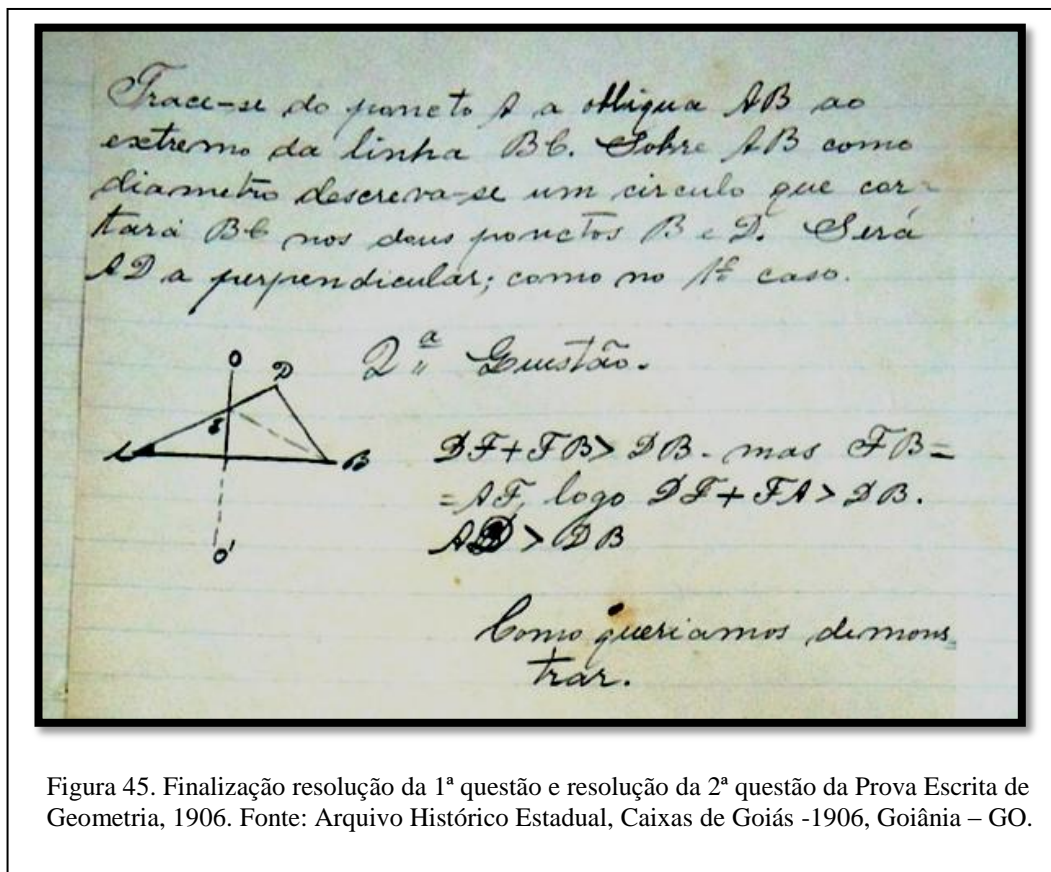 Trace-se do poncto A a obliqua AB ao
extremo da linha BC. Sobre AB como
diametro descreva-se um circulo que cor-
tará BC nos dous ponctos B e D. Será
AD a perpendicular; como no 1º caso.
2ª Questão.
O
D
A
B
O'
DF+FB> DB. mas FB=
=AF, logo DF+FA> DB.
AD > DB
Como queriamos demons-
trar.
Figura 45. Finalização resolução da 1ª questão e resolução da 2ª questão da Prova Escrita de
Geometria, 1906. Fonte: Arquivo Histórico Estadual, Caixas de Goiás -1906, Goiânia – GO.